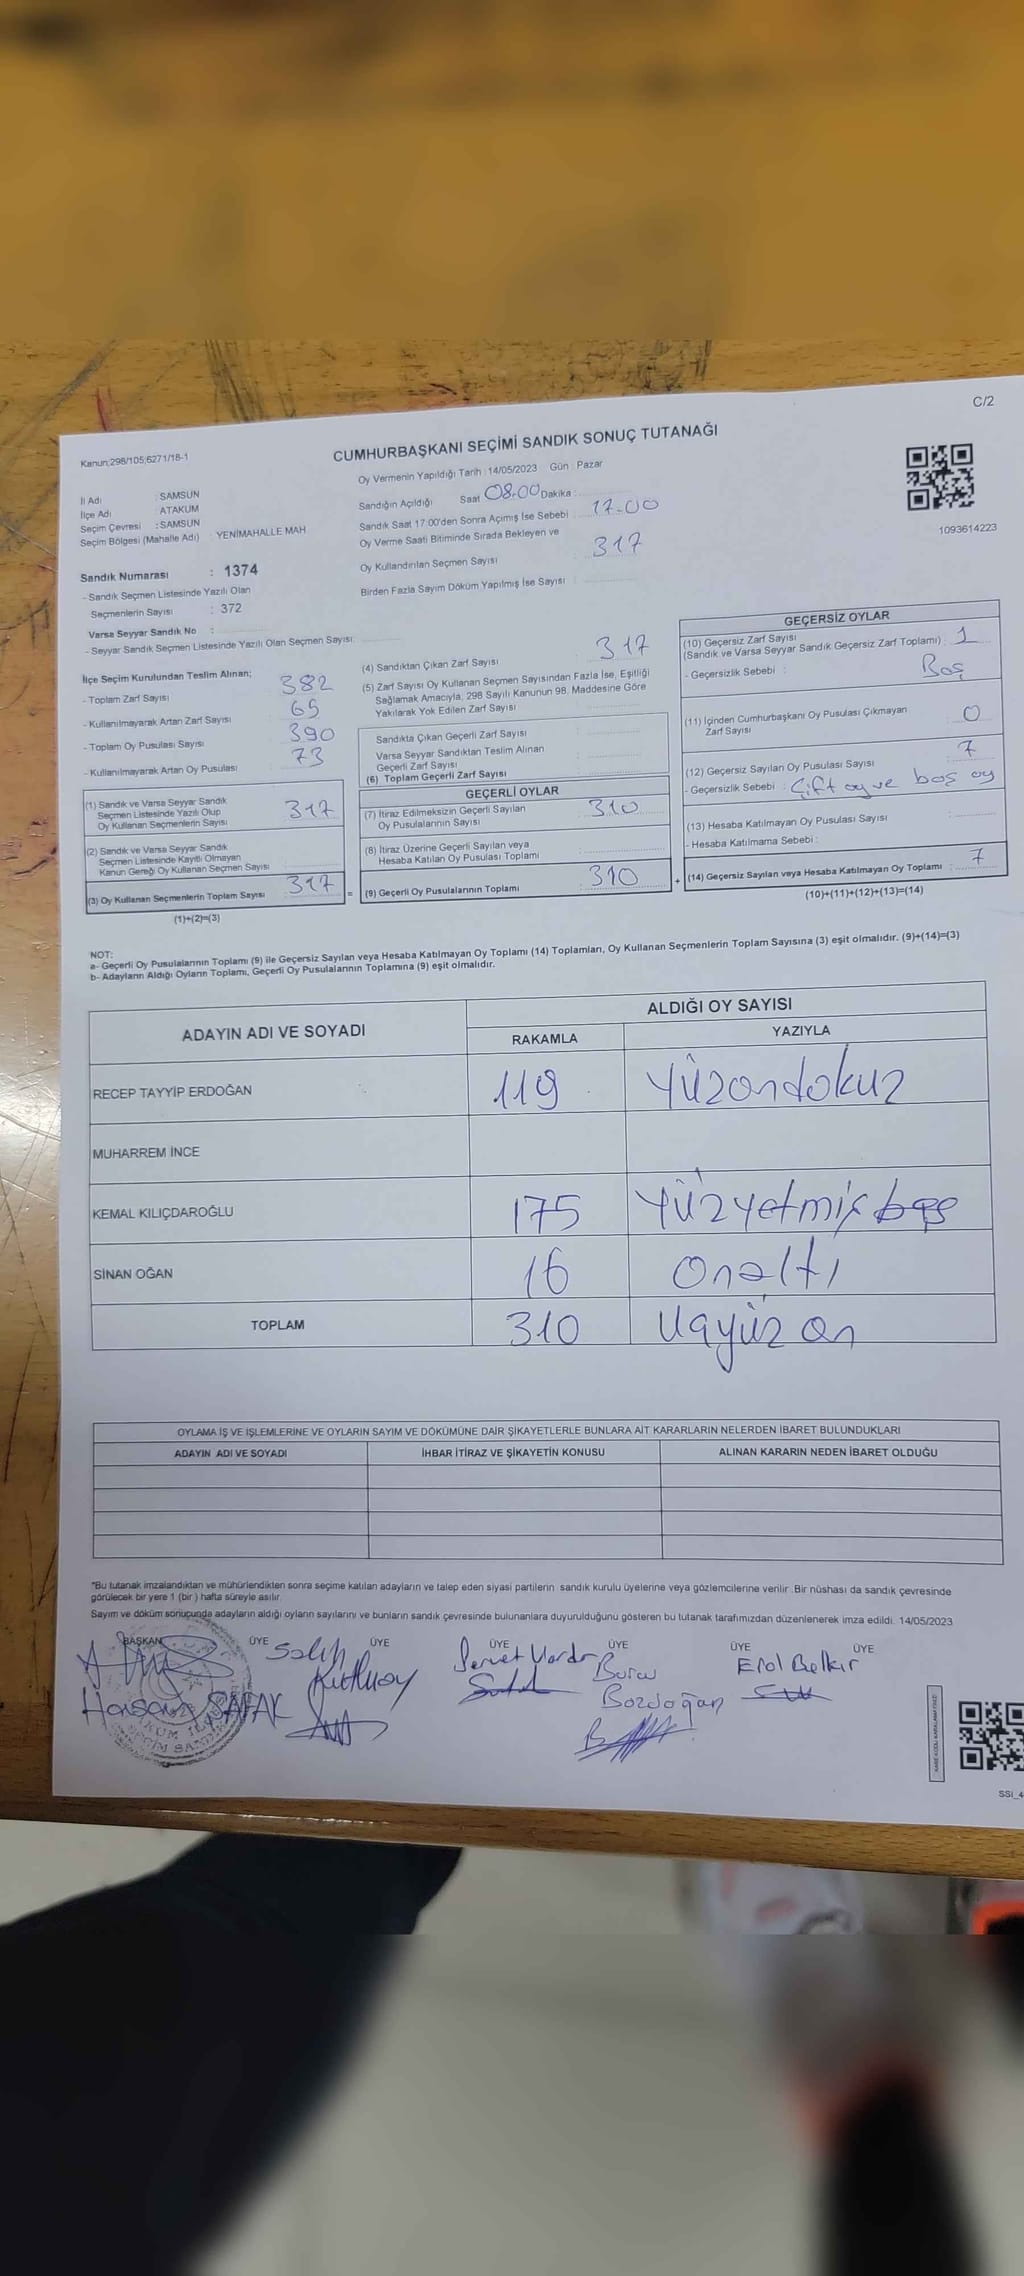 C/2
Kanun;298/105;6271/18-1
CUMHURBAŞKANI SEÇİMİ SANDIK SONUÇ TUTANAĞI
Oy Vermenin Yapıldığı Tarih : 14/05/2023 Gün : Pazar
İl Adı : SAMSUN
İlçe Adı : ATAKUM
Seçim Çevresi : SAMSUN
Seçim Bölgesi (Mahalle Adı) : YENİMAHALLE MAH
Sandığın Açıldığı Saat 08.00 Dakika :
Sandık Saat 17:00'den Sonra Açımış İse Sebebi : 17-00
Oy Verme Saati Bitiminde Sırada Bekleyen ve
Oy Kullandırılan Seçmen Sayısı : 317
Birden Fazla Sayım Döküm Yapılmış İse Sayısı :
1093614223
Sandık Numarası : 1374
- Sandık Seçmen Listesinde Yazılı Olan
Seçmenlerin Sayısı : 372
Varsa Seyyar Sandık No :
- Seyyar Sandık Seçmen Listesinde Yazılı Olan Seçmen Sayısı:
İlçe Seçim Kurulundan Teslim Alınan;
- Toplam Zarf Sayısı : 382
- Kullanılmayarak Artan Zarf Sayısı : 65
- Toplam Oy Pusulası Sayısı : 390
- Kullanılmayarak Artan Oy Pusulası : 73
(1) Sandık ve Varsa Seyyar Sandık
Seçmen Listesinde Yazılı Olup
Oy Kullanan Seçmenlerin Sayısı : 317
(2) Sandık ve Varsa Seyyar Sandık
Seçmen Listesinde Kayıtlı Olmayan
Kanun Gereği Oy Kullanan Seçmen Sayısı
(3) Oy Kullanan Seçmenlerin Toplam Sayısı : 317 =
(1)+(2)=(3)
(4) Sandıktan Çıkan Zarf Sayısı : 317
(5) Zarf Sayısı Oy Kullanan Seçmen Sayısından Fazla İse, Eşitliği
Sağlamak Amacıyla, 298 Sayılı Kanunun 98. Maddesine Göre
Yakılarak Yok Edilen Zarf Sayısı :
Sandıkta Çıkan Geçerli Zarf Sayısı :
Varsa Seyyar Sandıktan Teslim Alınan
Geçerli Zarf Sayısı :
(6) Toplam Geçerli Zarf Sayısı :
GEÇERLİ OYLAR
(7) İtiraz Edilmeksizin Geçerli Sayılan
Oy Pusulalarının Sayısı : 310
(8) İtiraz Üzerine Geçerli Sayılan veya
Hesaba Katılan Oy Pusulası Toplamı :
(9) Geçerli Oy Pusulalarının Toplamı : 310 +
GEÇERSİZ OYLAR
(10) Geçersiz Zarf Sayısı
(Sandık ve Varsa Seyyar Sandık Geçersiz Zarf Toplamı) : 1
- Geçersizlik Sebebi : Boş
(11) İçinden Cumhurbaşkanı Oy Pusulası Çıkmayan
Zarf Sayısı : 0
(12) Geçersiz Sayılan Oy Pusulası Sayısı : 7
- Geçersizlik Sebebi : Çift oy ve boş oy
(13) Hesaba Katılmayan Oy Pusulası Sayısı :
- Hesaba Katılmama Sebebi :
(14) Geçersiz Sayılan veya Hesaba Katılmayan Oy Toplamı : 7
(10)+(11)+(12)+(13)=(14)
NOT:
a- Geçerli Oy Pusulalarının Toplamı (9) ile Geçersiz Sayılan veya Hesaba Katılmayan Oy Toplamı (14) Toplamları, Oy Kullanan Seçmenlerin Toplam Sayısına (3) eşit olmalıdır. (9)+(14)=(3)
b- Adayların Aldığı Oyların Toplamı, Geçerli Oy Pusulalarının Toplamına (9) eşit olmalıdır.
ADAYIN ADI VE SOYADI
ALDIĞI OY SAYISI
RAKAMLA YAZIYLA
RECEP TAYYİP ERDOĞAN 119 Yüzondokuz
MUHARREM İNCE
KEMAL KILIÇDAROĞLU 175 Yüzyetmiş beş
SİNAN OĞAN 16 Onaltı
TOPLAM 310 Uçyüz on
OYLAMA İŞ VE İŞLEMLERİNE VE OYLARIN SAYIM VE DÖKÜMÜNE DAİR ŞİKAYETLERLE BUNLARA AİT KARARLARIN NELERDEN İBARET BULUNDUKLARI
ADAYIN ADI VE SOYADI İHBAR İTİRAZ VE ŞİKAYETİN KONUSU ALINAN KARARIN NEDEN İBARET OLDUĞU
*Bu tutanak imzalandıktan ve mühürlendikten sonra seçime katılan adayların ve talep eden siyasi partilerin sandık kurulu üyelerine veya gözlemcilerine verilir .Bir nüshası da sandık çevresinde
görülecek bir yere 1 (bir ) hafta süreyle asılır.
Sayım ve döküm sonucunda adayların aldığı oyların sayılarını ve bunların sandık çevresinde bulunanlara duyurulduğunu gösteren bu tutanak tarafımızdan düzenlenerek imza edildi. 14/05/2023
BAŞKAN ÜYE ÜYE ÜYE ÜYE ÜYE ÜYE
Salih
Erol Belkır
Burcu
Bozdoğan
ŞAFAK